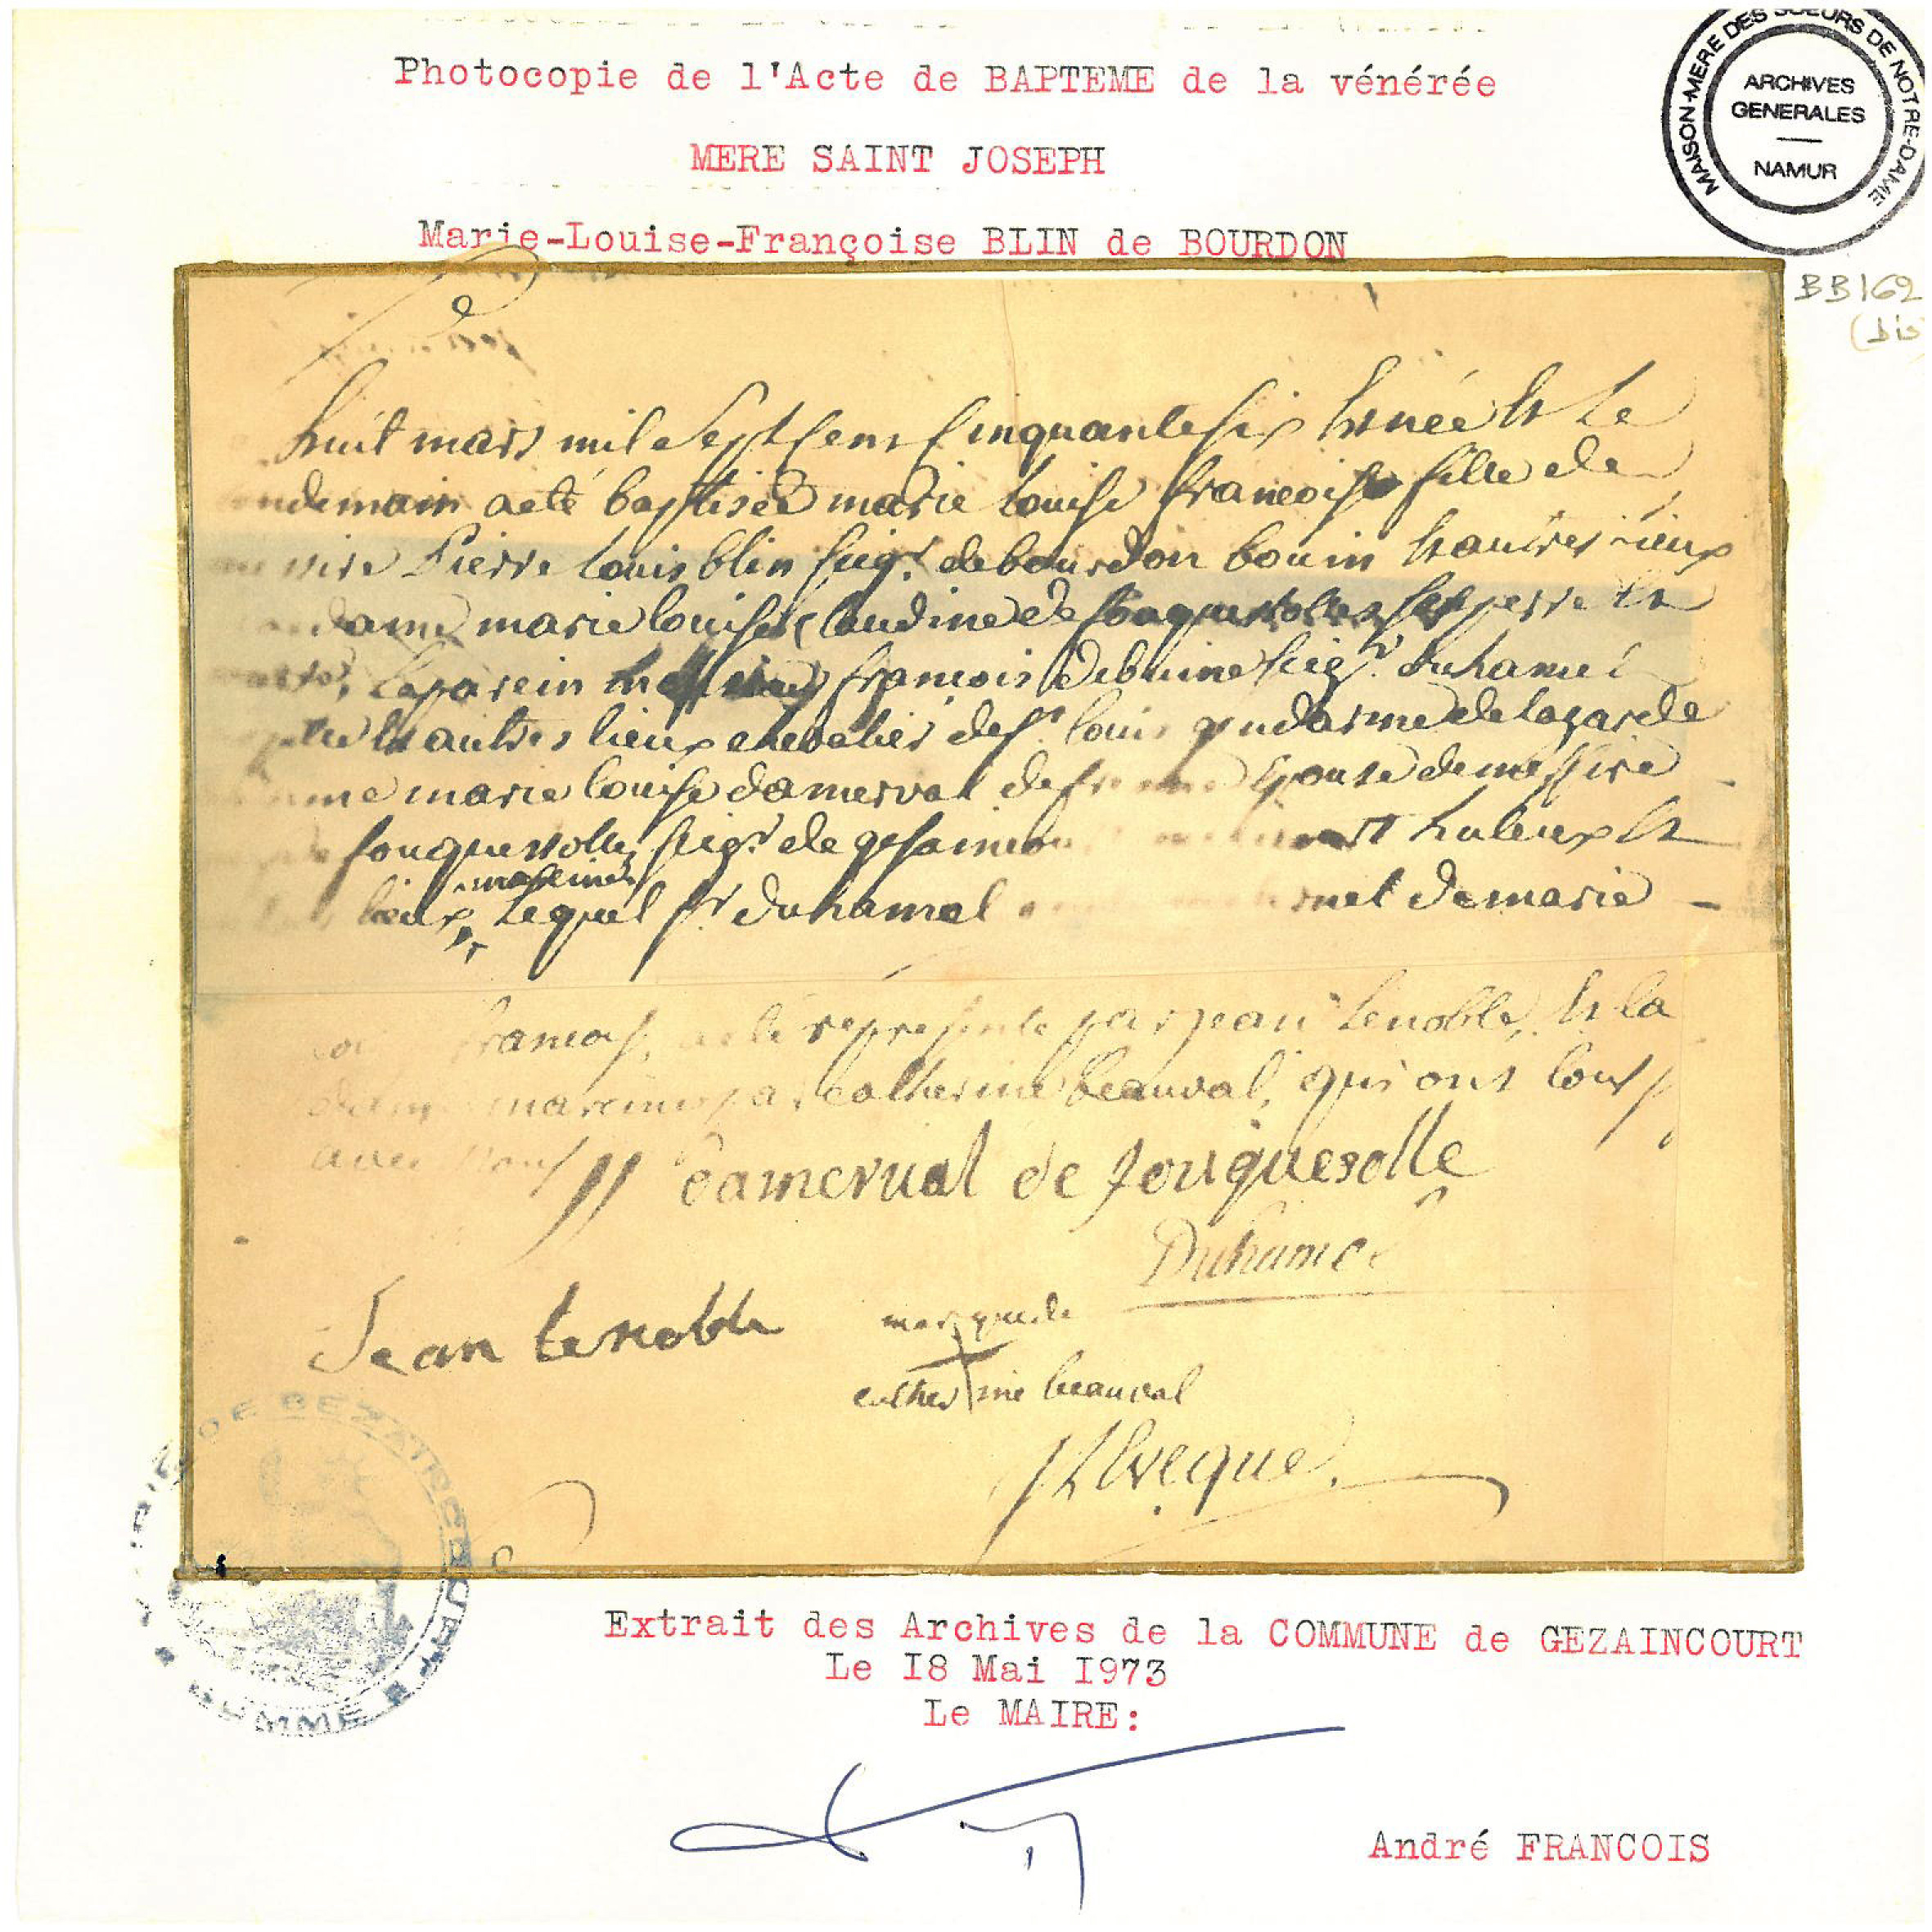 Photocopie de l'Acte de BAPTEME de la vénérée
MERE SAINT JOSEPH
Marie-Louise-Françoise BLIN de BOURDON
MAISON-MERE DES SOEURS DE NOTRE-DAME
ARCHIVES
GENERALES
NAMUR
BB162
(bis
huit mars mil Sept Cens Cinquante Six Est née Et Le
ndemain a eté baptisée marie Louise francoise fille de
Pierre Louis blin seigr. de bourdon bouin Et autres lieux
dame marie louise Claudine de fouquesolles ses perre Et
Le parein francois debuine seigr. Duhamel
Et autres lieux chevalier de st. louis gendarme de la garde
marie louise damerval de Epouse de messire
fouquesolles seigr. de gesaincou huleux Et
mareine
lieux, Lequel sr. duhamel de marie
francois, a eté represente par jean Lenoble, Et la
dame mareine par catherine beauval, qui ont tous
avec nous
damerval de fouquesolle
Duhamel
Jean Lenoble
marque de
catherine beauval
Leveque
DE BEZAINCOURT
SOMME
Extrait des Archives de la COMMUNE de GEZAINCOURT
Le I8 Mai I973
Le MAIRE:
André FRANCOIS